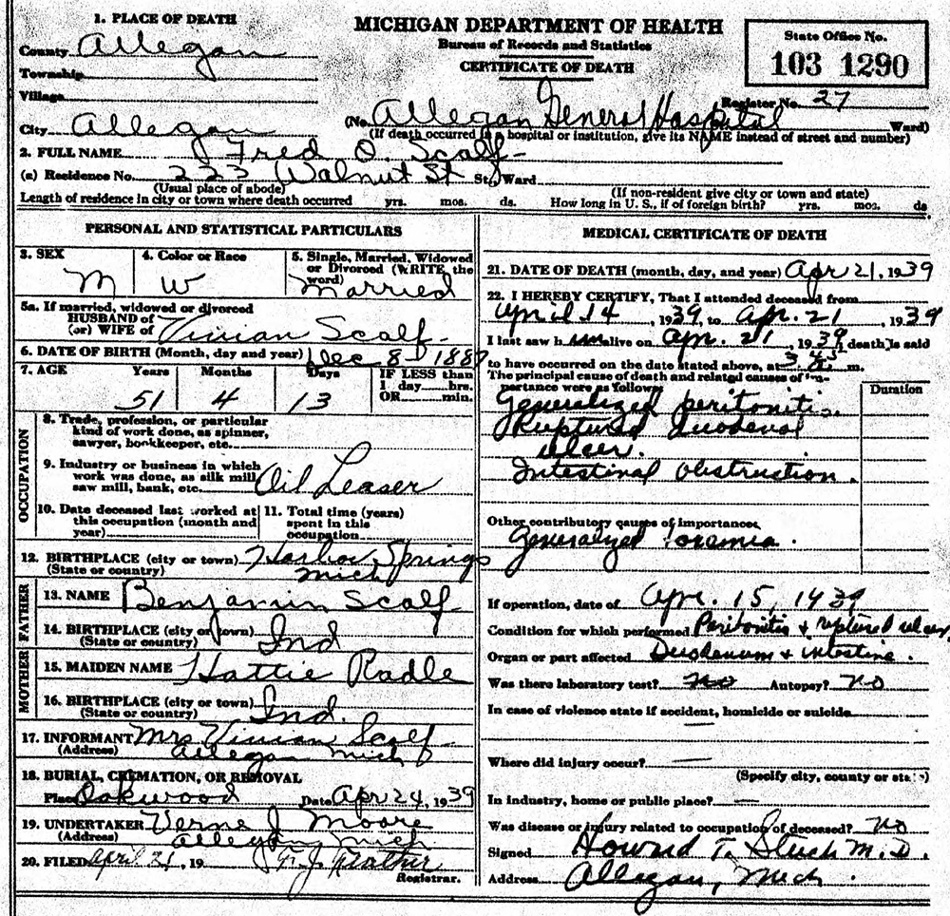 1. PLACE OF DEATH
County Allegan
Township
Village
City Allegan
MICHIGAN DEPARTMENT OF HEALTH
Bureau of Records and Statistics
CERTIFICATE OF DEATH
State Office No.
103 1290
Register No. 27
(No. Allegan General Hospital Ward)
(If death occurred in a hospital or institution, give its NAME instead of street and number)
2. FULL NAME Fred O. Scalf
(a) Residence No. 223 Walnut St St., Ward
(Usual place of abode) (If non-resident give city or town and state)
Length of residence in city or town where death occurred yrs. mos. ds. How long in U. S., if of foreign birth? yrs. mos. ds
PERSONAL AND STATISTICAL PARTICULARS
3. SEX
M
4. Color or Race
W
5. Single, Married, Widowed
or Divorced (WRITE the
word)
Married
5a. If married, widowed or divorced
HUSBAND of
(or) WIFE of Vivian Scalf
6. DATE OF BIRTH (Month, day and year) Dec 8 - 1887
7. AGE Years Months Days IF LESS than
1 day hrs.
OR min.
51 4 13
OCCUPATION
8. Trade, profession, or particular
kind of work done, as spinner,
sawyer, bookkeeper, etc.
9. Industry or business in which
work was done, as silk mill
saw mill, bank, etc. Oil Leaser
10. Date deceased last worked at
this occupation (month and
year)
11. Total time (years)
spent in this
occupation
12. BIRTHPLACE (city or town) Harbor Springs
(State or country) Mich
FATHER
13. NAME Benjamin Scalf
14. BIRTHPLACE (city or town) Ind
(State or country)
MOTHER
15. MAIDEN NAME Hattie Radle
16. BIRTHPLACE (city or town) Ind.
(State or country)
17. INFORMANT Mrs Vivian Scalf
(Address) Allegan Mich
18. BURIAL, CREMATION, OR REMOVAL
Place Oakwood Date Apr 24, 1939
19. UNDERTAKER Verne J Moore
(Address) Allegan Mich
20. FILED April 21, 19
Registrar.
MEDICAL CERTIFICATE OF DEATH
21. DATE OF DEATH (month, day, and year) Apr 21, 1939
22. I HEREBY CERTIFY, That I attended deceased from
April 14, 1939, to Apr. 21, 1939
I last saw him alive on Apr. 21, 1939 death is said
to have occurred on the date stated above, at 3 45 m.
The principal cause of death and related causes of im-
portance were as follows: Duration
Generalized peritonitis.
Ruptured duodenal
ulcer.
Intestinal obstruction.
Other contributory causes of importance:
Generalized toxemia.
If operation, date of Apr. 15, 1939
Condition for which performed Peritonitis + ruptured ulcer
Organ or part affected Duodenum + intestine.
Was there laboratory test? no Autopsy? no
In case of violence state if accident, homicide or suicide
Where did injury occur? —
(Specify city, county or state)
In industry, home or public place? —
Was disease or injury related to occupation of deceased? no
Signed Howard T. Stuch M.D.
Address Allegan, Mich.